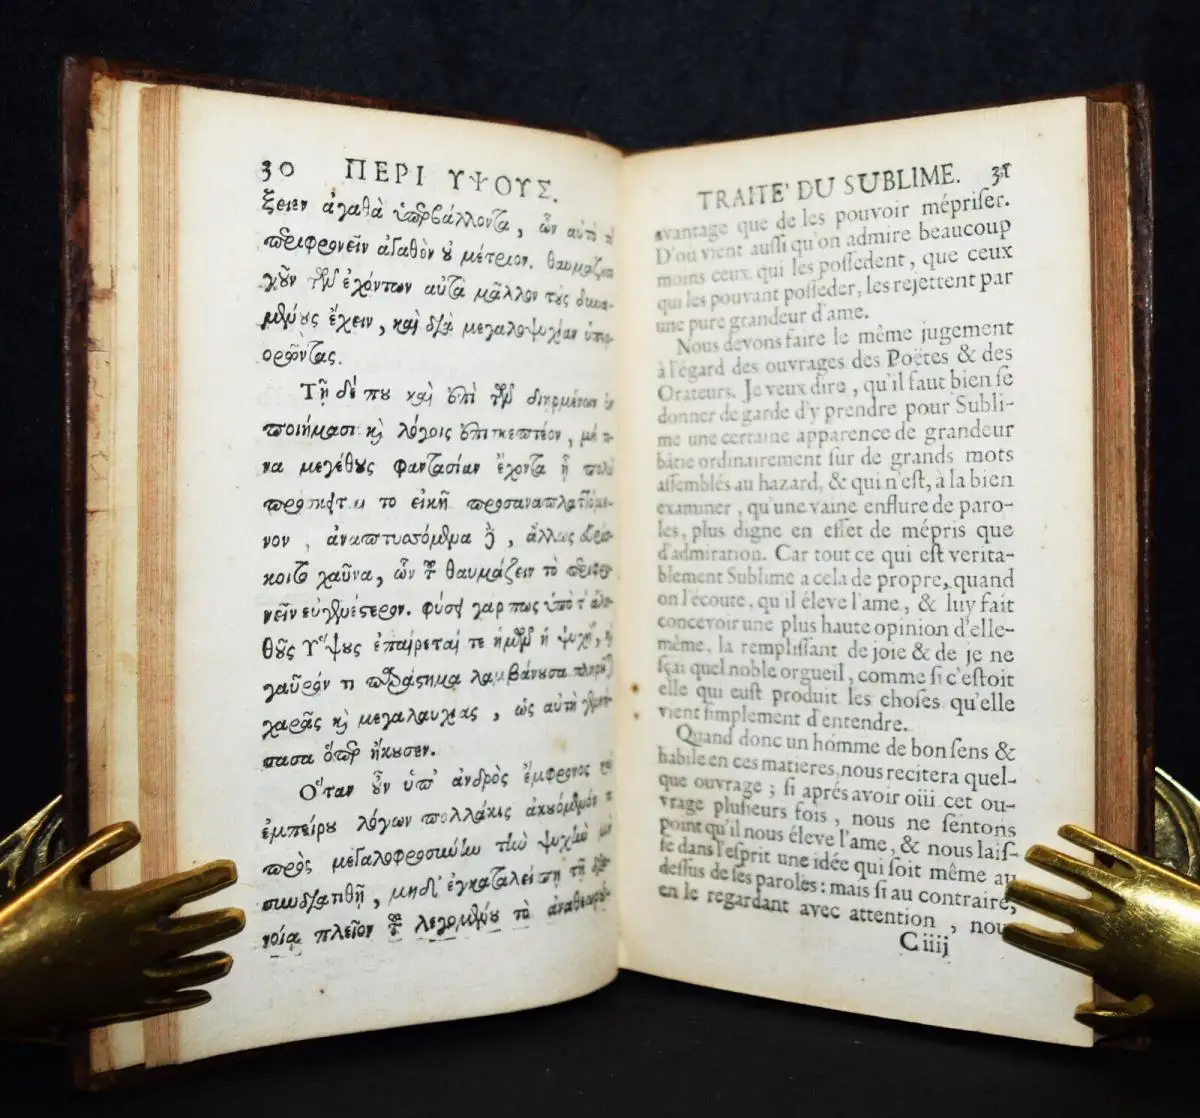 30 ΠΕΡΙ ΥΨΟΥΣ.
ξειεν ἀγαθὰ ὑπερβάλλοντα, ὧν αὐτὸ τὸ
περιφρονεῖν ἀγαθὸν οὐ μέτριον. θαυμάζουσι
γοῦν τῶν ἐχόντων αὐτὰ μᾶλλον τοὺς δυνα-
μένους ἔχειν, καὶ διὰ μεγαλοψυχίαν ὑπερ-
ορῶντας.
Τῇ δέ που καὶ ἐπὶ τῶν διηρμένων ἐν
ποιήμασι καὶ λόγοις ἐπισκεπτέον, μή τι-
να μεγέθους φαντασίαν ἔχοντα ᾗ πολὺ
το εἰκῆ προσαναπλαττόμε-
νον, ἀναπτυσσόμενα δὲ, ἄλλως εὑρίσ-
κοιτο χαῦνα, ὧν τοῦ θαυμάζειν τὸ περιφρο-
νεῖν εὐγενέστερον. φύσει γάρ πως ὑπὸ τ' ἀλη-
θοῦς Ὕψους ἐπαίρεταί τε ἡμῶν ἡ ψυχὴ, καὶ
γαῦρόν τι παράστημα λαμβάνουσα πληροῦται
χαρᾶς καὶ μεγαλαυχίας, ὡς αὐτὴ γεννή-
σασα ὅπερ ἤκουσεν.
Ὅταν οὖν ὑπ' ἀνδρὸς ἔμφρονος καὶ
ἐμπείρου λόγων πολλάκις ἀκουόμενόν τι
πρὸς μεγαλοφροσύνην τὴν ψυχὴν μὴ
συνδιατιθῇ, μηδ' ἐγκαταλείπῃ τῇ δια-
νοίᾳ πλεῖον τοῦ λεγομένου τὸ ἀναθεωρού-
TRAITE' DU SUBLIME. 31
avantage que de les pouvoir mépriser.
D'où vient aussi qu'on admire beaucoup
moins ceux qui les possedent, que ceux
qui les pouvant posseder, les rejettent par
une pure grandeur d'ame.
Nous devons faire le même jugement
à l'égard des ouvrages des Poëtes & des
Orateurs. Je veux dire, qu'il faut bien se
donner de garde d'y prendre pour Subli-
me une certaine apparence de grandeur
bâtie ordinairement sur de grands mots
assemblés au hazard, & qui n'est, à la bien
examiner, qu'une vaine enflure de paro-
les, plus digne en effet de mépris que
d'admiration. Car tout ce qui est verita-
blement Sublime a cela de propre, quand
on l'écoute, qu'il éleve l'ame, & luy fait
concevoir une plus haute opinion d'elle-
même, la remplissant de joie & de je ne
sçai quel noble orgueil, comme si c'estoit
elle qui eust produit les choses qu'elle
vient simplement d'entendre.
Quand donc un homme de bon sens &
habile en ces matieres, nous recitera quel-
que ouvrage ; si aprés avoir oüi cet ou-
vrage plusieurs fois, nous ne sentons
point qu'il nous éleve l'ame, & nous lais-
se dans l'esprit une idée qui soit même au
dessus de ses paroles : mais si au contraire,
en le regardant avec attention, nous
C iiij